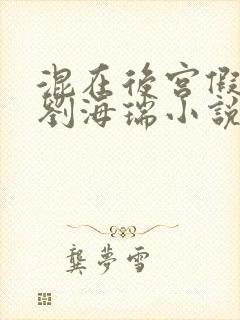 混在後宮假
劉海瑞小說
龔夢雪